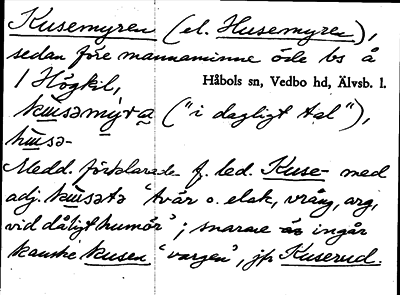 Kusemyren (el. Husemyren),
sedan före mannaminne öde bs å
1 Högkil, Håbols sn, Vedbo hd, Älvsb. l.
kusəmyra ("i dagligt tal"),
husə-
Medd. förklarade f. led. Kuse- med
adj. kusətə "tvär o. elak, vrång, arg,
vid dåligt humör"; snarare ingår
kanske kusen "vargen", jfr Kuserud.